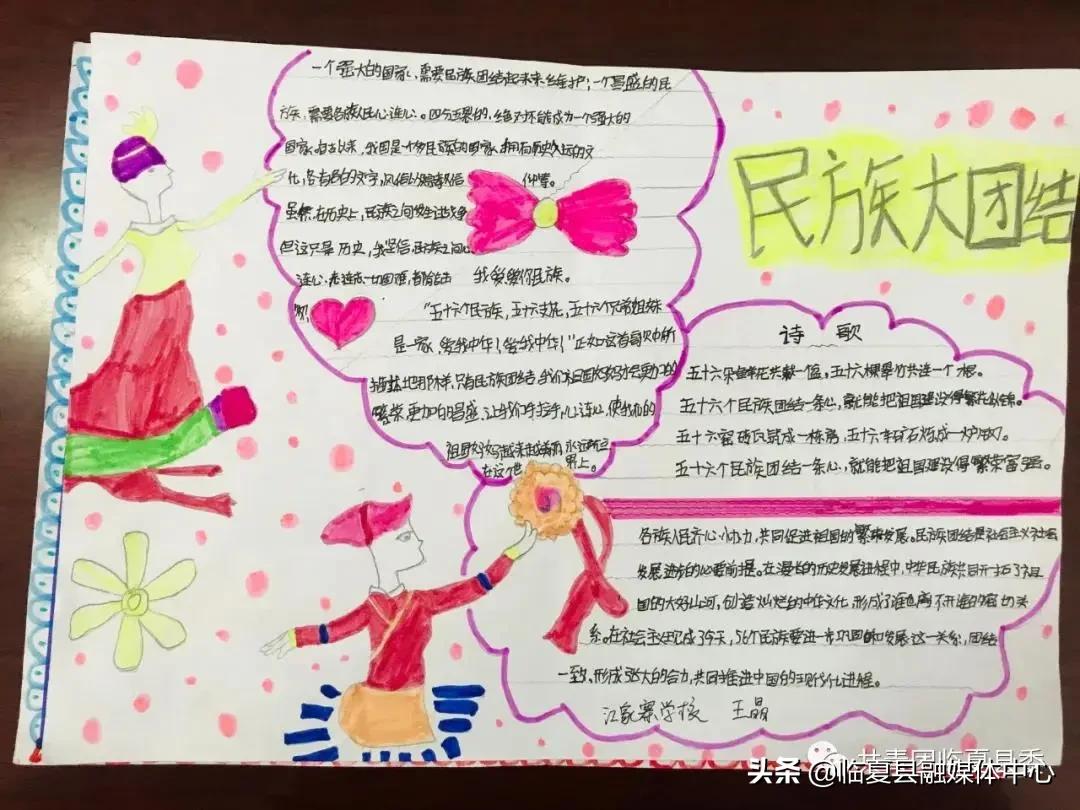 民族大团结
一个强大的国家，需要民族团结起来来维护；一个昌盛的民
族，需要各族人民心连心。四分五裂的，绝对不能成为一个强大的
国家。自古以来，我国是一个多民族的国家，拥有历史久远的文
化，各有自的文字，风俗 仰等。
虽然，在历史上，民族之间发生过战争
但这只是历史，我坚信，民族之间心
连心， 我爱我们民族。
“五十六个民族，五十六支花，五十六个兄弟姐妹
是一家，爱我中华！爱我中华！”正如这首歌中所
那样，只有民族团结，我们祖国妈妈才会更加的
繁荣，更加的昌盛，让我们手拉手，心连心，使我们的
祖国妈妈越来越美丽，永远屹立
在这个世界上。
诗歌
五十六朵鲜花共献一值，五十六棵翠竹共连一个根。
五十六个民族团结一条心，就能把祖国建设得繁花似锦。
五十六窑砖瓦筑成一栋房，五十六车矿石炼成一炉钢。
五十六个民族团结一条心，就能把祖国建设得繁荣富强。
各族人民齐心协力，共同促进祖国的繁荣发展。民族团结是社会主义社会
发展进步的必要前提。在漫长的历史发展进程中，中华民族共同开拓了祖
国的大好山河，创造灿烂的中华文化，形成了谁也离不开谁的密切关
系。在社会主义现成今天，56个民族要进一步巩固和发展这一关系，团结
一致，形成强大的合力，共同推进中国的现代化进程。
江家寨学校 王晶
甘青团临夏县委
头条 @临夏县融媒体中心